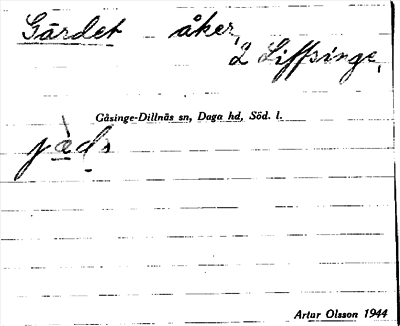 Gärdet åker,
2 Liffringe,
Gåsinge-Dillnäs sn, Daga hd, Söd. l.
jæ̀ḍs
Artur Olsson 1944